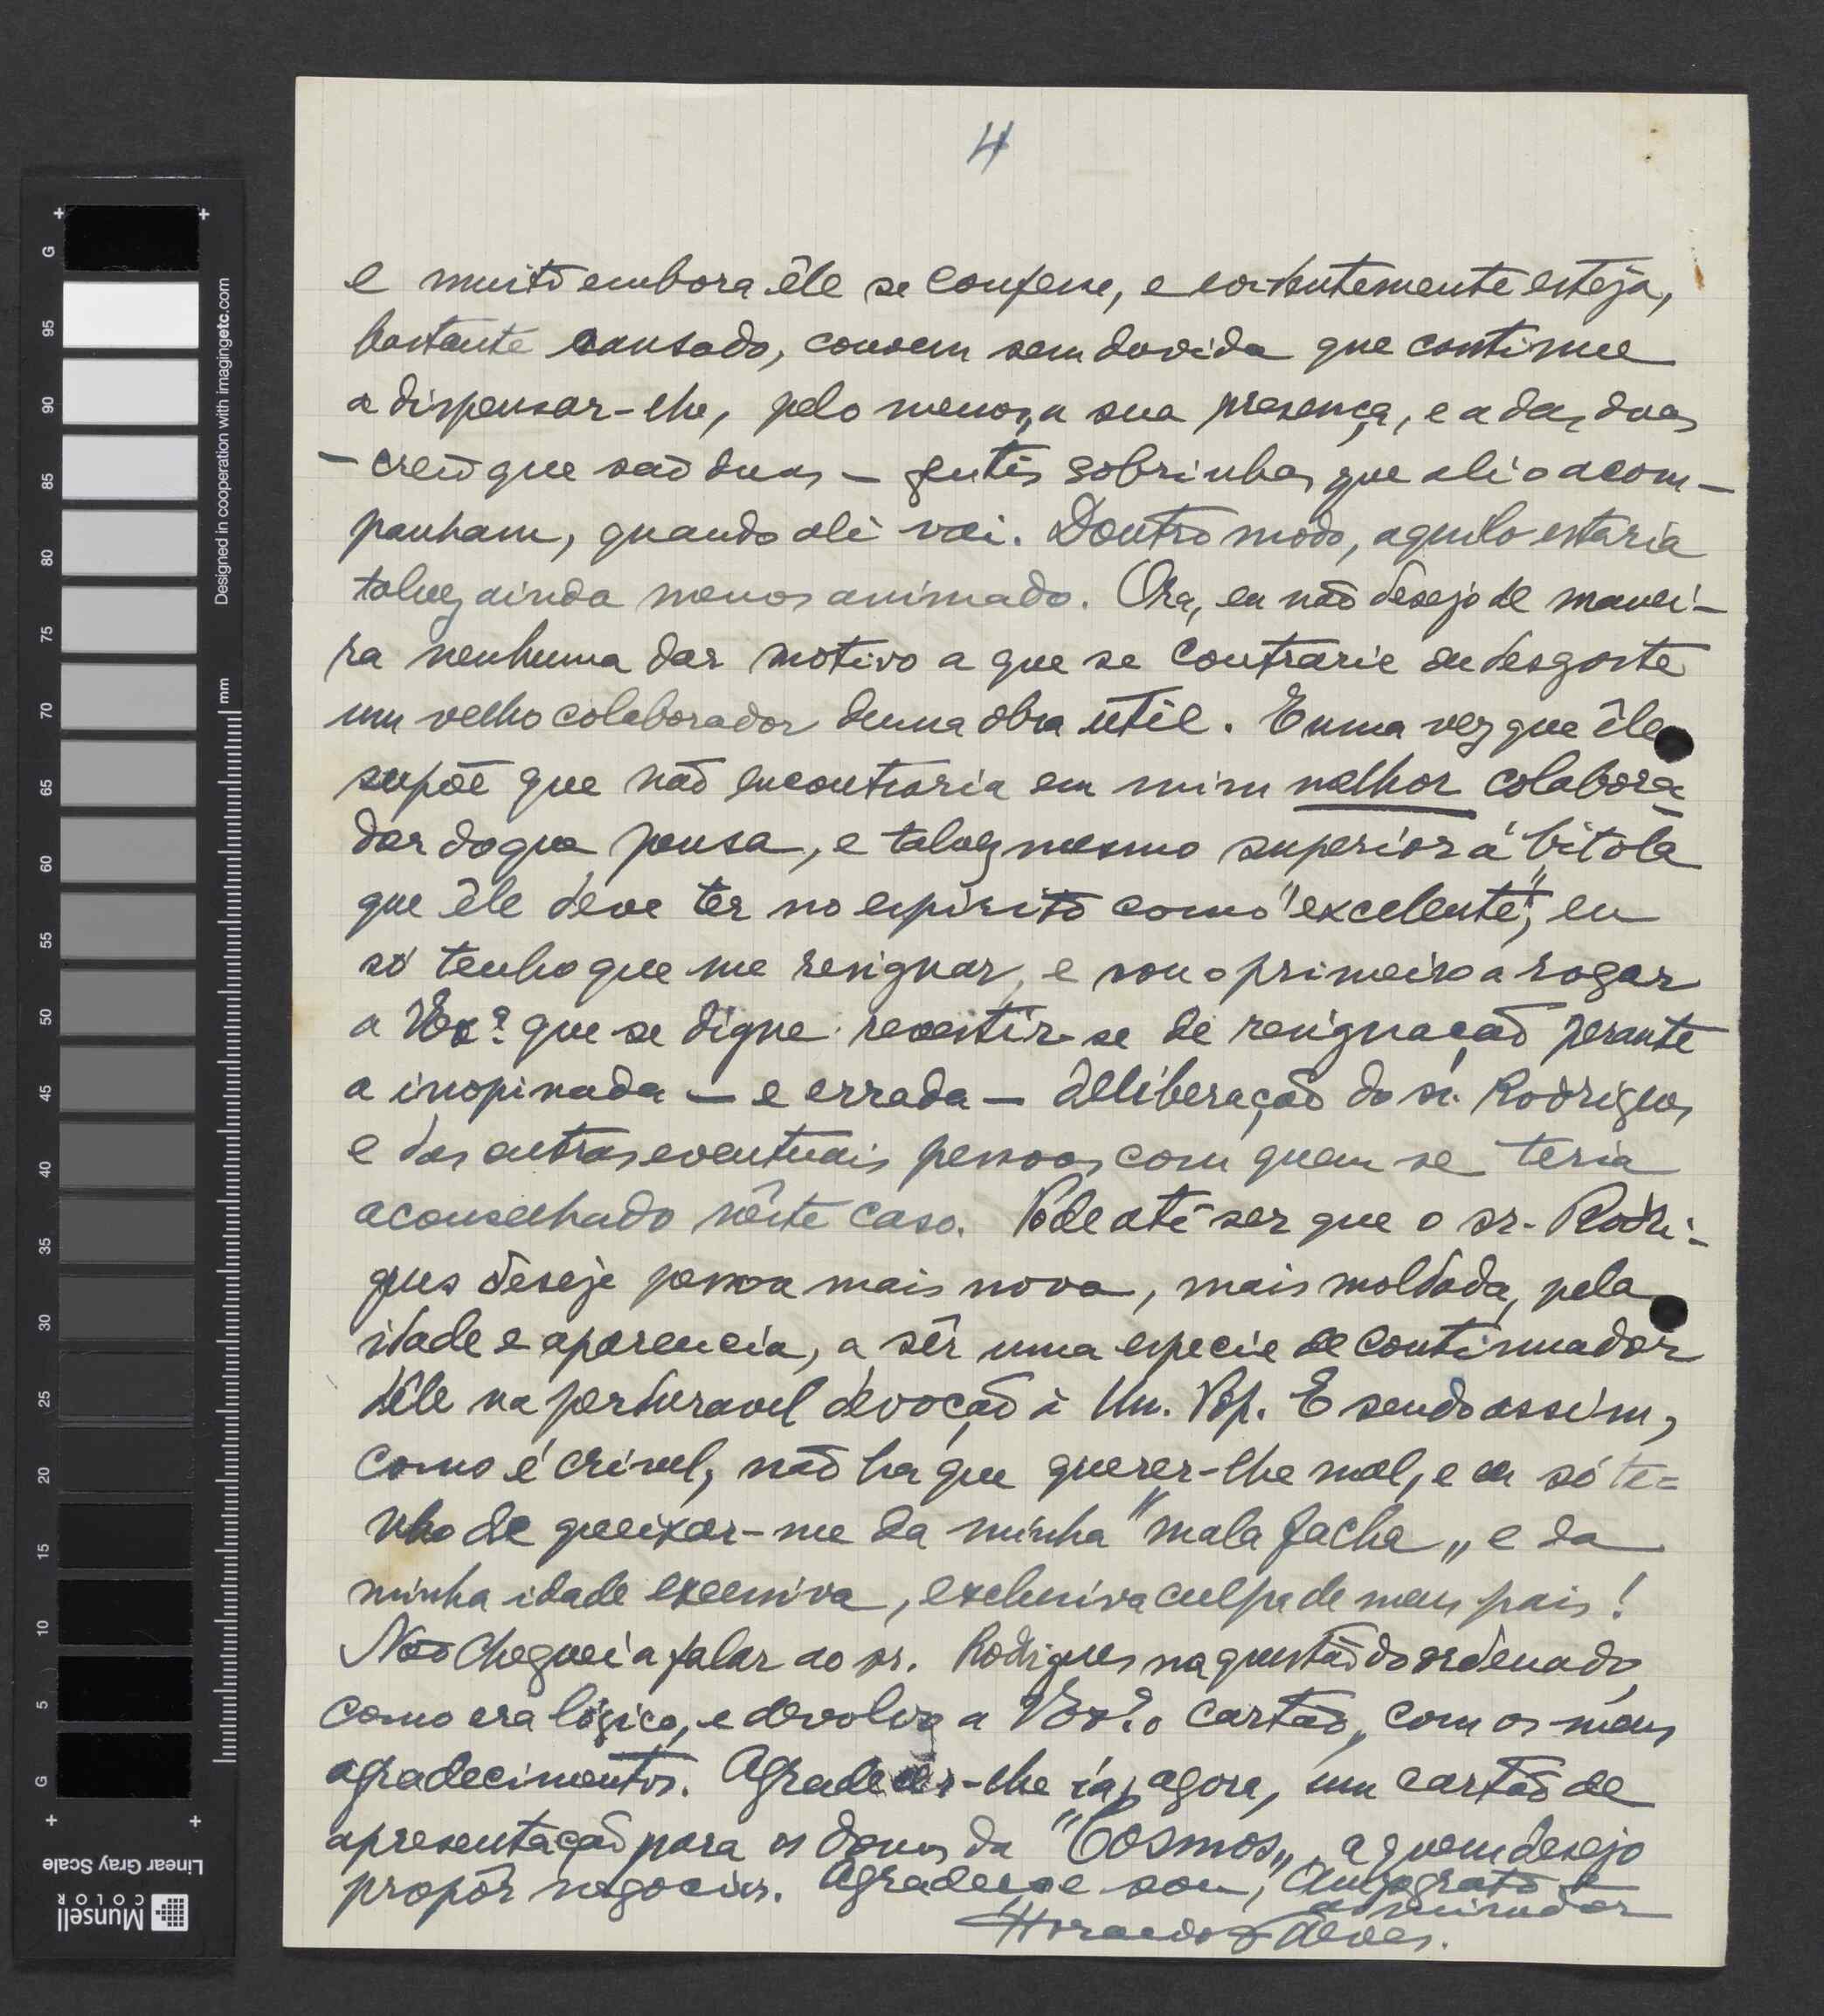 4
e muito embora êle se confesse, e evidentemente esteja,
bastante cansado, convem sem duvida que continue
a dispensar-lhe, pelo menos, a sua presença, e a das duas
— creio que são duas — gentis sobrinhas que ali o acom-
panham, quando ali vai. Doutro modo, aquilo estaria
talvez ainda menos animado. Ora, eu não desejo de manei-
ra nenhuma dar motivo a que se contrarie ou desgoste
um velho colaborador duma obra util. E uma vez que êle
supõe que não encontraria em mim melhor colabora
dor do que pensa, e talvez mesmo superior á bitola
que êle deve ter no espirito como "excelente", eu
só tenho que me resignar, e sou o primeiro a rogar
a V.Ex.ª que se digne revestir-se de resignação perante
a inopinada — e errada — deliberação do sr. Rodrigues
e das outras eventuais pessoas com quem se teria
aconselhado nêste caso. Pode até ser que o sr. Rodri-
gues deseje pessoa mais nova, mais moldada, pela
idade e aparencia, a sêr uma especie de continuador
dêle na perduravel devoção á Un. Pop. E sendo assim,
como é crivel, não ha que querer-lhe mal, e eu só te=
nho de queixar-me da minha "mala facha„ e da
minha idade excessiva, exclusiva culpa de meus pais!
Não cheguei a falar ao sr. Rodrigues na questão do ordenado,
como era lógico, e devolvo a V.Ex.ª o cartão, com os meus
agradecimentos. Agradecer-lhe ia, agora, um cartão de
apresentação para os donos da "Cosmos„, a quem desejo
propôr negocios. Agradece e sou, Amº grato e
admirador
Alves.
Munsell
COLOR
Linear Gray Scale
Designed in cooperation with imagingetc.com
mm
G
95
90
85
80
75
70
65
60
55
50
45
40
35
30
25
20
15
10
5
G